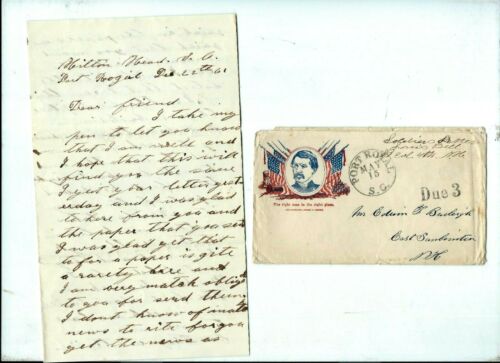 Hilton Head S. C.
Port Rogial Dec 22th 61
Dear friend
I take my
pen to let you know
that I am well and
I hope that this will
find you the same
I got your letter yeste
erday and I was glad
to here from you and
the paper that you sent
I was glad get that
for a paper is qite
a rarety here and
I am very match oblige
to you for send them
I dont know of much
news to rite for you
get the news as
Soldier's Letter
PORT ROYAL
MAY
15
S.C.
Due 3
The right man in the right place.
Mr Edwin F Burleigh
East
N H